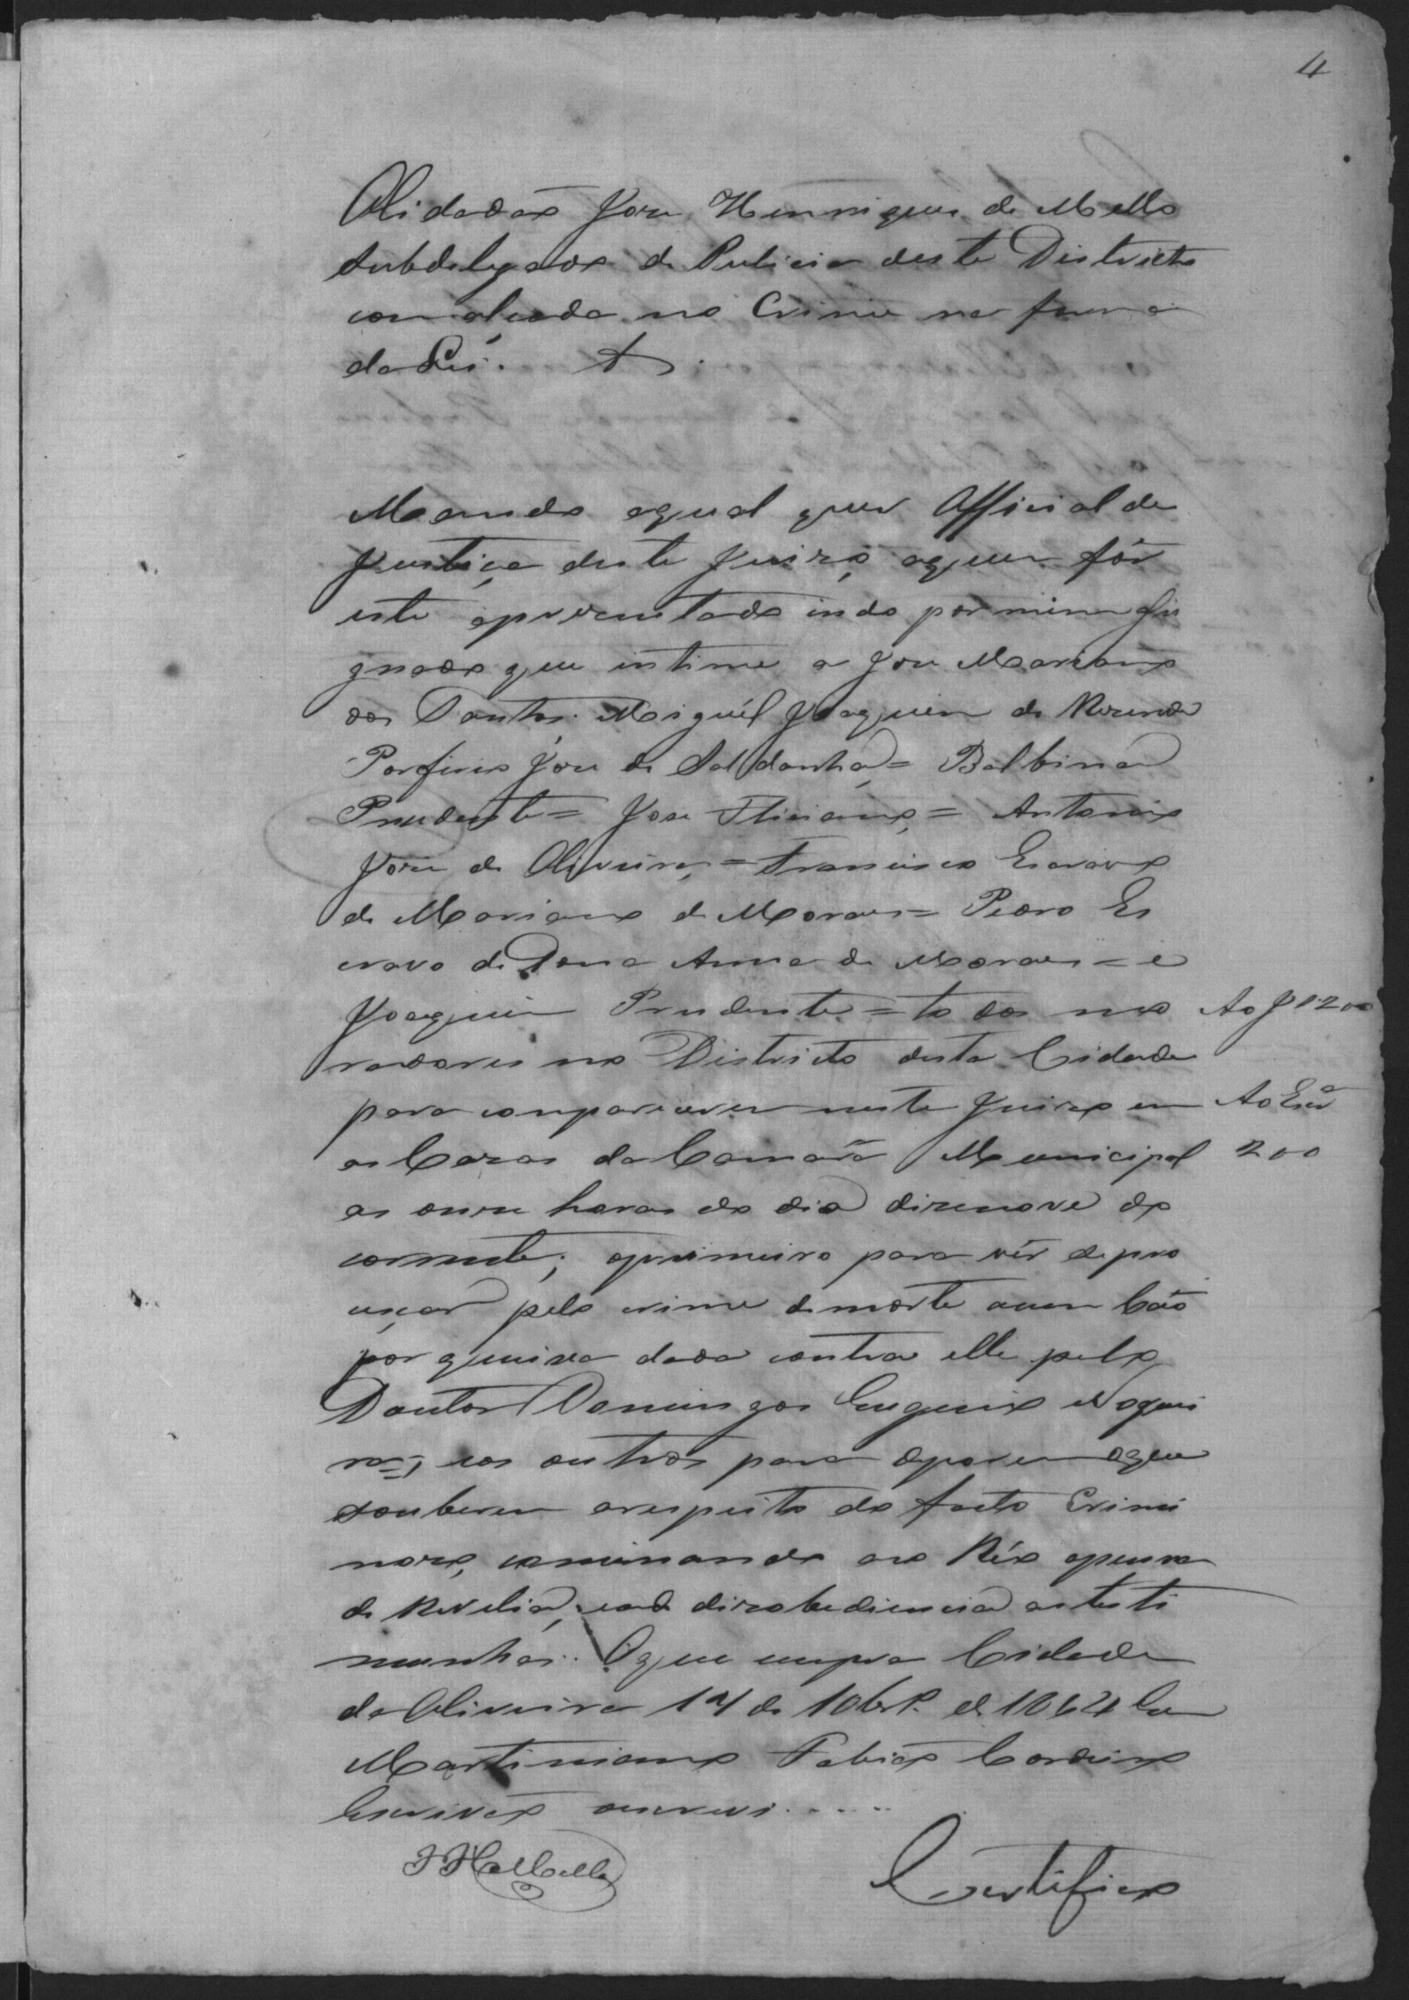 4
Cidadão Jose Henriques de Mello
subdelegado de Pulicia deste Districto
com alçada no Crime na forma
da Lei.
Mando aqual quer Official de
Justiça deste Juizo, aquem fôr
este aprezentado indo por mim asi
gnado que intime a Jose Marcano
dos Santos. Miguél Joaquim de Rezende
Porfirio Jose de Saldanha = Balbina
Prudente = Jose Fliciano, = Antonio
Jose de Oliveira, = Francisco Escravo
de Mariano de Moraes = Pedro Es
cravo de Dona Anna de Moraes = e
Joaquim Prudente = todos mo
radores no Districto desta Cidade
para comparecerem neste Juizo em
as Cazas da Camara Municipal
as onze horas do dia dizenove do
corrente; oprimeiro para vêr se pro
ceçar pelo crime de morte aum Cão
por queixa dada contra elle pelo
Doutor Domingos Eugenio Noguei
ra =, eos outros para deporem oque
souberem arespeito do facto Crimi
nozo, cominando ao Réo apenna
de Revelia, ea de dizobediencia as testi
munhas. Oque cumpra Cidade
da Oliveira 14 de 10br.º de 1864 Eu
Martiniano Fabião Cordeiro
Escrivão escrevi.....
J H de Mello
Certifico
Ao J 1200
Ao Esc.ᵃᵐ
200